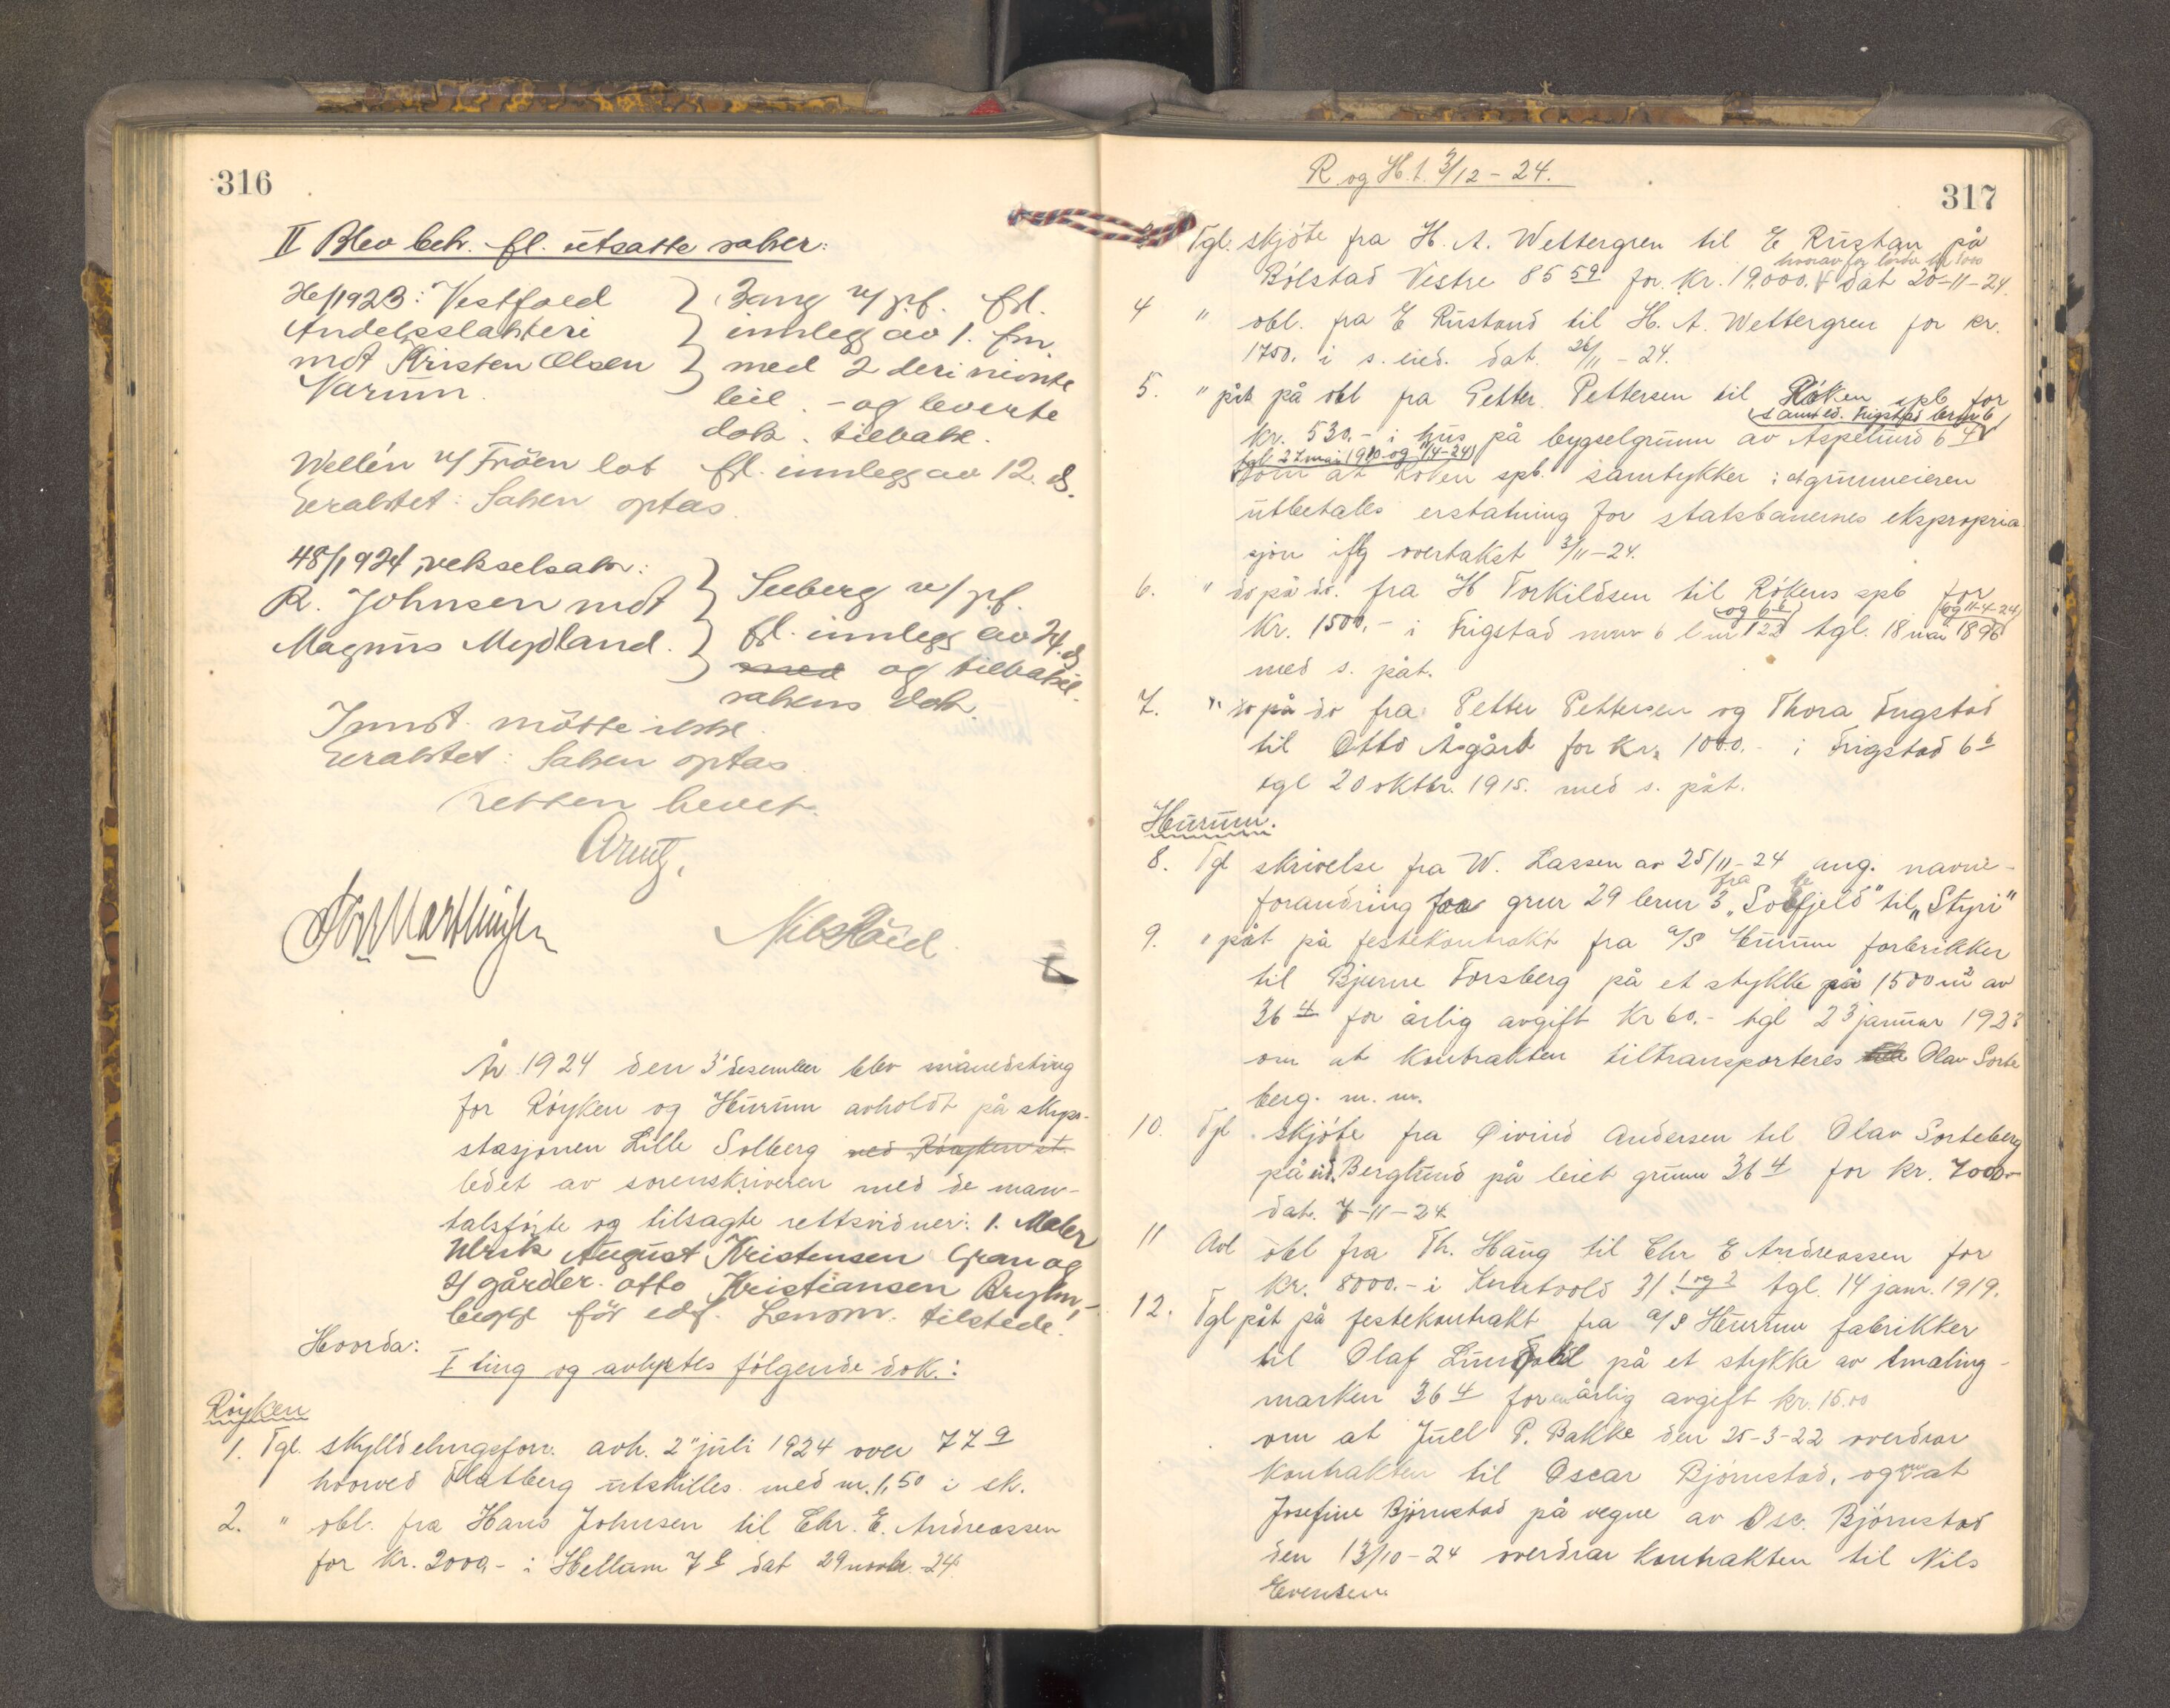 316
II Blev beh. fl. utsatte saker:
/1923: Vestfold
Andelsslakteri
mot Kristen Olsen
Narum.
Bang v/ p.f. frl.
innlegg av 1. fm.
med 2 deri nevnte
beil. - og leverte
dok. tilbake.
Wellén v/ Fröen lot fl. innlegg av 12. ds.
Eraktet: Saken optas.
48/1924, vekselsak:
R. Johnsen mot
Magnus Mydland.
Seeberg v/ p.f.
fl. innlegg av 24. ds
med og tilbakel.
sakens dok.
Innst. mötte ikke.
Eraktet: Saken optas
Retten hevet.
Arentz.
Nils Höid.
År 1924 den 3' desember blev månedsting
for Røyken og Hurum avholdt på skys-
stasjonen Lille Solberg ved Røyken st.
ledet av sorenskriveren med de man-
talsførte og tilsagte rettsvidner: 1. Maler
Ulrik August Kristensen Gran og
2/ gårdbr. Otto Kristiansen Bryhn,-
begge för edf. Lensm. tilstede.
Hvorda:
I ting og avlystes følgende dok.:
Røyken
1. Tgl. skylldelingsforr. avh. 2" juli 1924 over 77 9
hvorved Flatberg utskilles med m. 1,50 i sk.
2. " obl. fra Hans Johnsen til Chr. E. Andreassen
for kr. 2000,- i Hellum 7 dat 29 novbr. -24.
R. og H. t. 3/12 - 24.
317
3 Tgl. skjöte fra H. A. Wettergren til E Rustan på
hvorav for lösöre kr 1000
Bölstad Vestre 85 59 for kr. 19.000.- dat 20-11-24.
4 " obl. fra E Rustand til H. A. Wettergren for kr.
1750. i s. eied. dat. 26/11 - 24.
5. " påt på obl fra Petter Pettersen til Röken spb for
(samt ed. Frigstad brnr 6)
kr. 530.- i hus på bygselgrunn av Aspelund 6 4
tgl 27 mai 1910 og 11/4-24)
om at Röken spb. samtykker i at grunneieren
utbetales erstatning for statsbanernes ekspropria
sjon iflg overtakst 3/11-24.
6. " do på do. fra H Torkildsen til Rökens spb for
(og 6 6) (og 11-4-24)
kr. 1500,- i Frigstad 6 122 tgl. 18 mai 1896
med s. påt.
7. " do på do fra Petter Pettersen og Thora Frigstad
til Otto Ågård for kr. 1000.- i Frigstad 6 6
tgl 20 oktbr. 1915. med s. påt.
Hurum.
8. Tgl skrivelse fra W. Lassen av 25/11-24 ang. navne-
fra
forandring for grnr 29 brnr 3 "Solfjeld" til "Styri"
9. " påt på festekontrakt fra a/s Hurum fabrikker
til Bjarne Forsberg på et stykke på 1500 m2 av
36 4 for årlig avgift kr 60.- tgl 23 januar 1923
om at kontrakten tiltransporteres Olav Sorte
berg. m. m.
10. Tgl skjöte fra Öivind Andersen til Olav Sorteberg
på eid. Berglund på leiet grunn 36 4 for kr. 7000.-
dat. 7-11-24.
11 Avl obl fra Th. Haug til Chr E Andreassen for
kr. 8000.- i Knatvold 31 1 og 2 tgl. 14 janr. 1919.
12. Tgl påt på festekontrakt fra a/s Hurum fabrikker
til Olaf Lundvold på et stykke av Tmaling-
marken 36 4 for en årlig avgift kr. 15.00
om at Juell P. Bakke den 25-3-22 overdrar
kontrakten til Oscar Björnstad, og om at
Josefine Björnstad på vegne av Osc. Björnstad
den 13/10-24 overdrar kontrakten til Nils
Evensen.